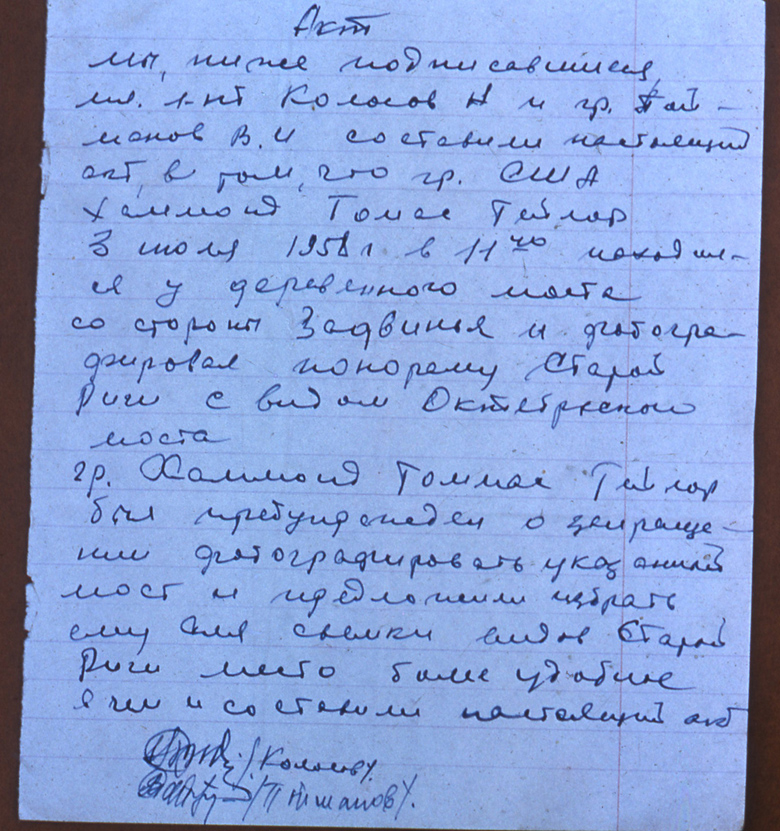 Акт
мы, ниже подписавшиеся,
мл. л-нт Колосов Н и гр. Той-
манов В.И составили настоящий
акт, в том, что гр. США
Хаммонд Томас Тейлор
3 июля 1958 г в 11 40 находил-
ся у деревенного моста
со стороны Задвинья и фотогра-
фировал понораму Старой
Риги с видом Октябрьского
моста
гр. Хаммонд Томмас Тейлор
был предупрежден о запреще-
нии фотографировать указанный
мост и предложили избрать
ему для съемки видов Старой
Риги место более удобное
и составили настоящий акт
/Колосов/.